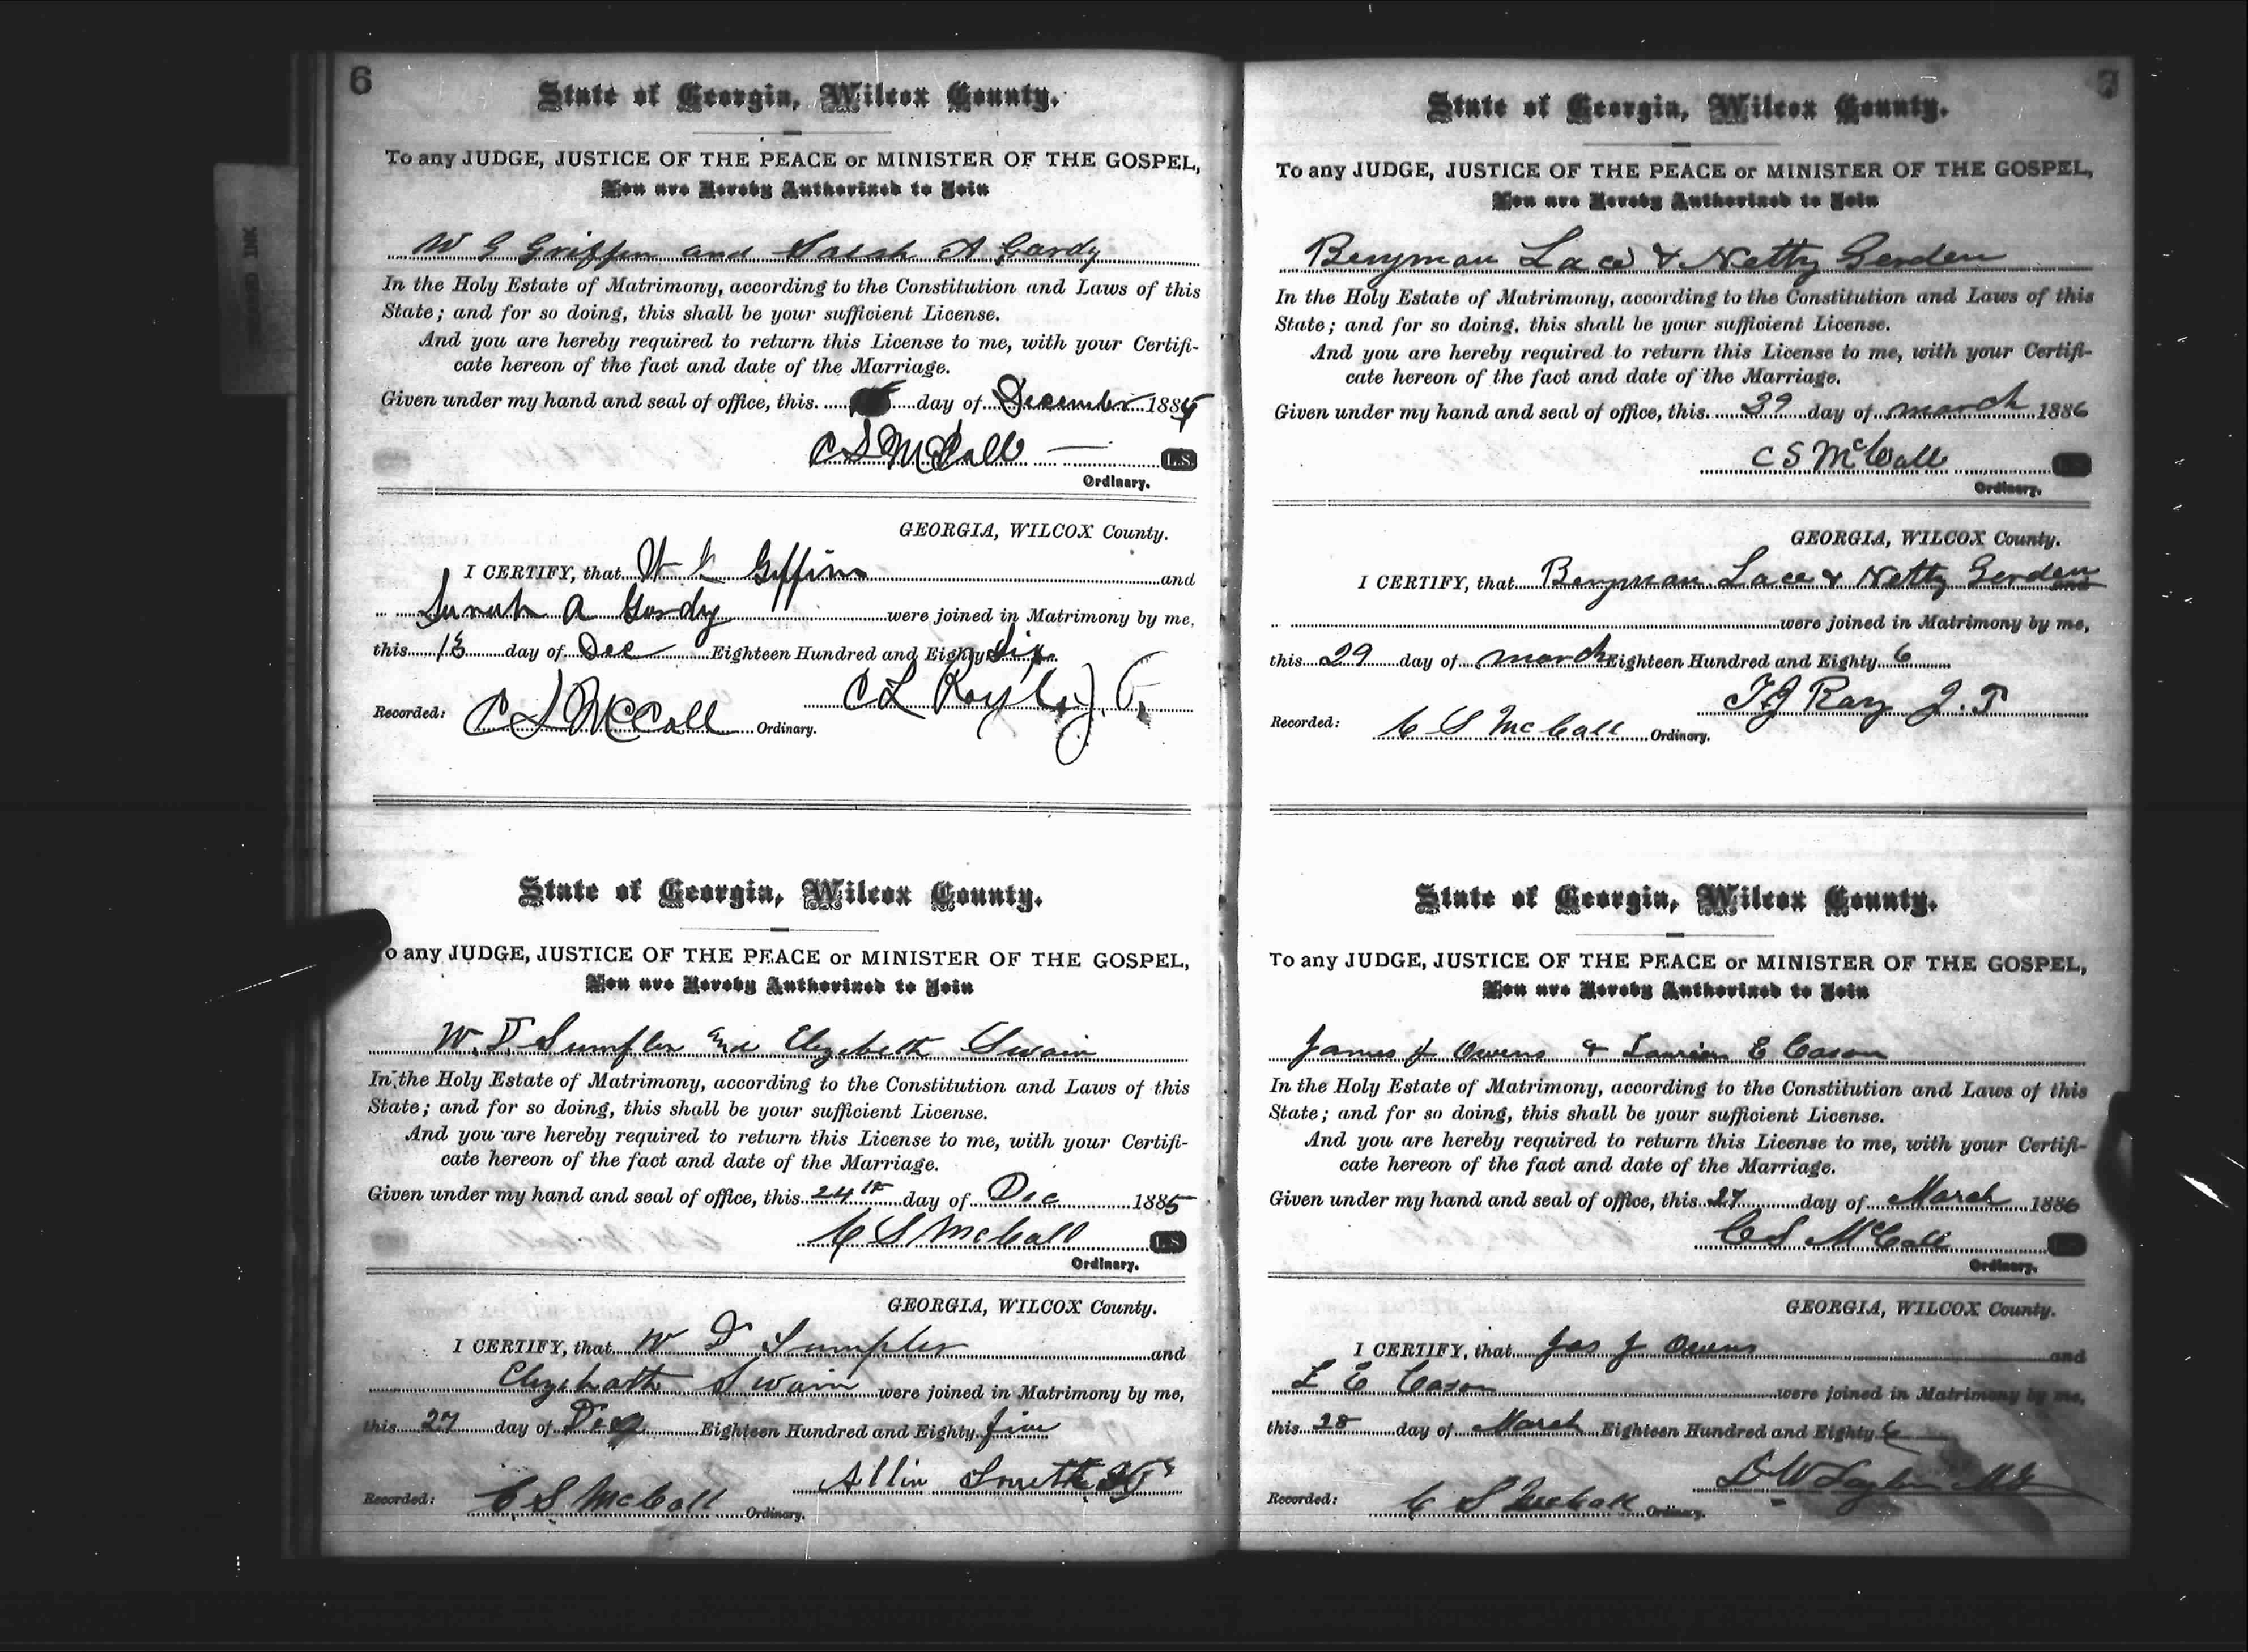 6
State of Georgia, Wilcox County.
To any JUDGE, JUSTICE OF THE PEACE or MINISTER OF THE GOSPEL,
You are Hereby Authorized to Join
W G Griffin and Sarah A Gardy
In the Holy Estate of Matrimony, according to the Constitution and Laws of this
State; and for so doing, this shall be your sufficient License.
And you are hereby required to return this License to me, with your Certifi-
cate hereon of the fact and date of the Marriage.
Given under my hand and seal of office, this day of December 188
C S McCall L.S.
Ordinary.
GEORGIA, WILCOX County.
I CERTIFY, that W Giffin and
Sarah A Gordy were joined in Matrimony by me,
this day of Dec Eighteen Hundred and Eighty Six
C L
Recorded: C S McCall Ordinary.
State of Georgia, Wilcox County.
o any JUDGE, JUSTICE OF THE PEACE or MINISTER OF THE GOSPEL,
You are Hereby Authorized to Join
W. D. Sumpler and Elizebeth Swain
In the Holy Estate of Matrimony, according to the Constitution and Laws of this
State; and for so doing, this shall be your sufficient License.
And you are hereby required to return this License to me, with your Certifi-
cate hereon of the fact and date of the Marriage.
Given under my hand and seal of office, this 24th day of Dec 1885
C S McCall L.S.
Ordinary.
GEORGIA, WILCOX County.
I CERTIFY, that W D Sumpler and
Elizebath Swain were joined in Matrimony by me,
this 27 day of Dec Eighteen Hundred and Eighty five
Allin Smith
Recorded: C S McCall Ordinary.
7
State of Georgia, Wilcox County.
To any JUDGE, JUSTICE OF THE PEACE or MINISTER OF THE GOSPEL,
You are Hereby Authorized to Join
Benjman Lace & Netty Gerden
In the Holy Estate of Matrimony, according to the Constitution and Laws of this
State; and for so doing, this shall be your sufficient License.
And you are hereby required to return this License to me, with your Certifi-
cate hereon of the fact and date of the Marriage.
Given under my hand and seal of office, this 29 day of march 1886
C S McCall
Ordinary.
GEORGIA, WILCOX County.
I CERTIFY, that Benjman Lace & Netty Gerden and
were joined in Matrimony by me,
this 29 day of march Eighteen Hundred and Eighty 6
T J Ray J. P
Recorded: C S McCall Ordinary.
State of Georgia, Wilcox County.
To any JUDGE, JUSTICE OF THE PEACE or MINISTER OF THE GOSPEL,
You are Hereby Authorized to Join
James J Owens & E Cason
In the Holy Estate of Matrimony, according to the Constitution and Laws of this
State; and for so doing, this shall be your sufficient License.
And you are hereby required to return this License to me, with your Certifi-
cate hereon of the fact and date of the Marriage.
Given under my hand and seal of office, this 27 day of March 1886
C S McCall
Ordinary.
GEORGIA, WILCOX County.
I CERTIFY, that Jas J Owens and
L E Cason were joined in Matrimony by me,
this 28 day of March Eighteen Hundred and Eighty 6
Recorded: C S McCall Ordinary.